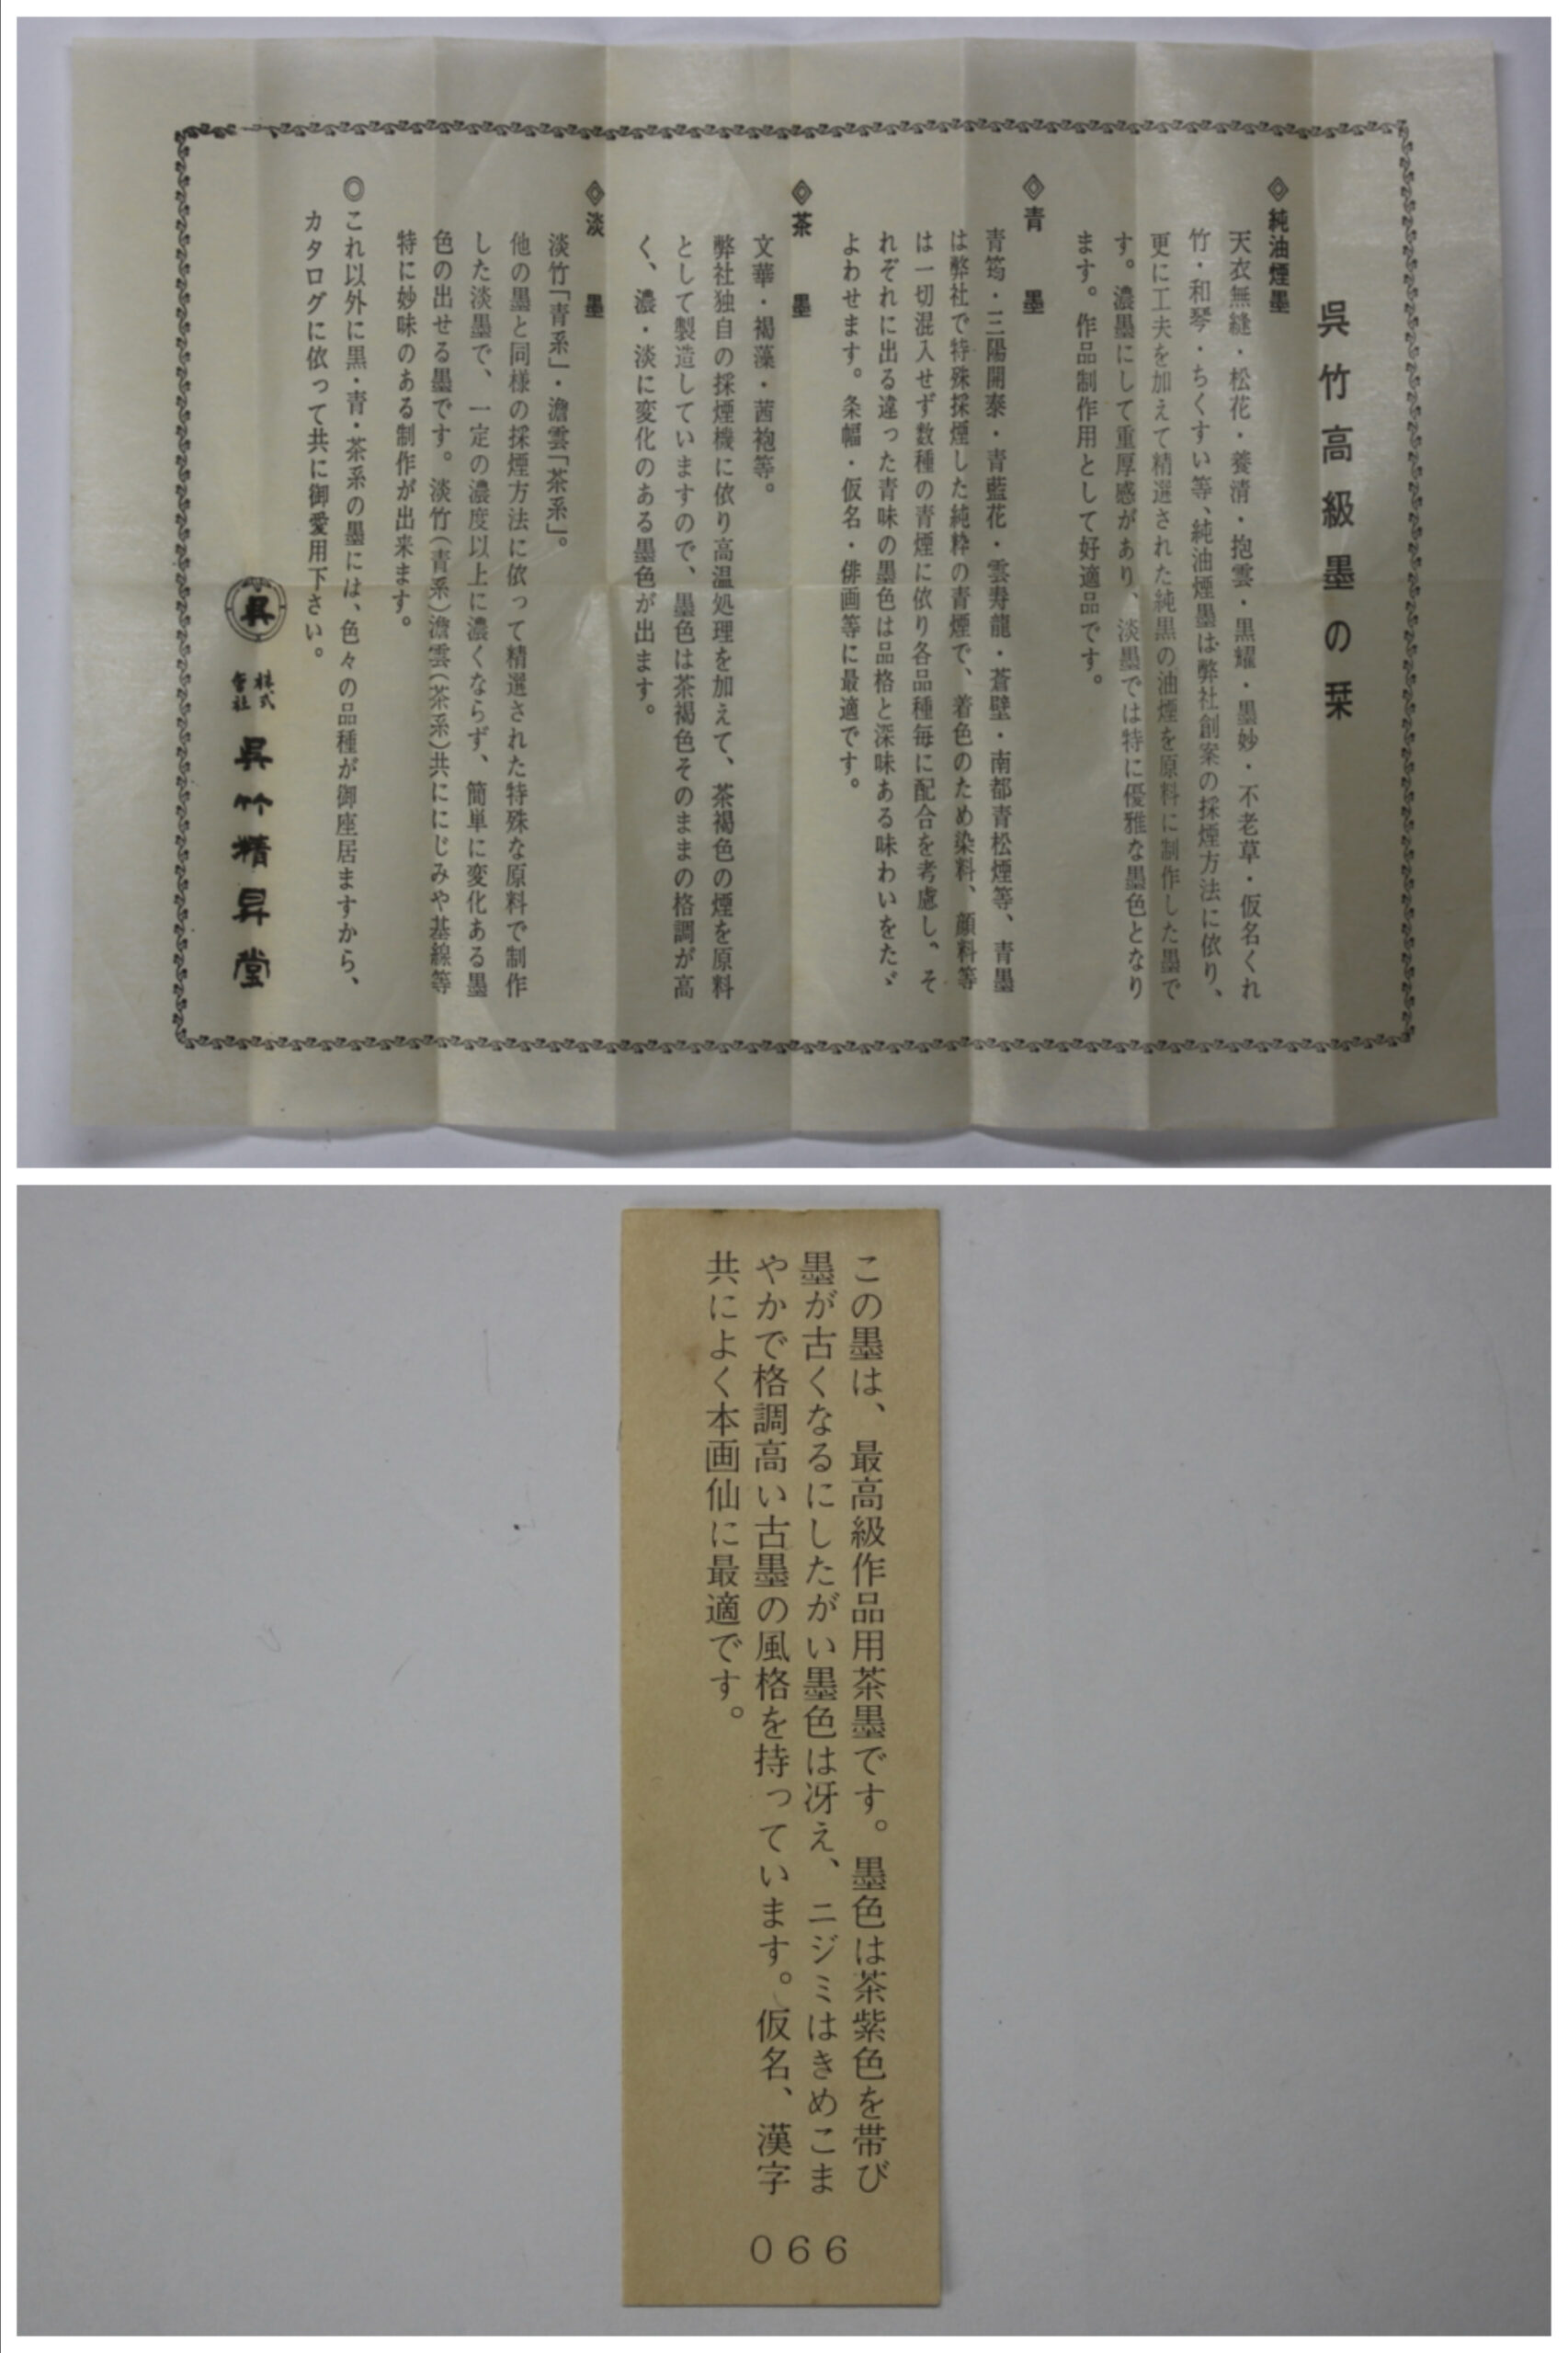 呉竹高級墨の栞
◇純油煙墨
天衣無縫・松花・養清・抱雲・黒耀・墨妙・不老草・仮名くれ
竹・和琴・ちくすい等、純油煙墨は弊社創案の採煙方法に依り、
更に工夫を加えて精選された純黒の油煙を原料に制作した墨で
す。濃墨にして重厚感があり、淡墨では特に優雅な墨色となり
ます。作品制作用として好適品です。
◇青墨
青筠・三陽開泰・青藍花・雲寿龍・蒼壁・南都青松煙等、青墨
は弊社で特殊採煙した純粋の青煙で、着色のため染料、顔料等
は一切混入せず数種の青煙に依り各品種毎に配合を考慮し、そ
れぞれに出る違った青味の墨色は品格と深味ある味わいをたゞ
よわせます。条幅・仮名・俳画等に最適です。
◇茶墨
文華・褐藻・茜袍等。
弊社独自の採煙機に依り高温処理を加えて、茶褐色の煙を原料
として製造していますので、墨色は茶褐色そのままの格調が高
く、濃・淡に変化のある墨色が出ます。
◇淡墨
淡竹「青系」・澹雲「茶系」。
他の墨と同様の採煙方法に依って精選された特殊な原料で制作
した淡墨で、一定の濃度以上に濃くならず、簡単に変化ある墨
色の出せる墨です。淡竹(青系)澹雲(茶系)共ににじみや基線等
特に妙味のある制作が出来ます。
◎これ以外に黒・青・茶系の墨には、色々の品種が御座居ますから、
カタログに依って共に御愛用下さい。
呉 株式会社 呉竹精昇堂
この墨は、最高級作品用茶墨です。墨色は茶紫色を帯び
墨が古くなるにしたがい墨色は冴え、ニジミはきめこま
やかで格調高い古墨の風格を持っています。仮名、漢字
共によく本画仙に最適です。
066